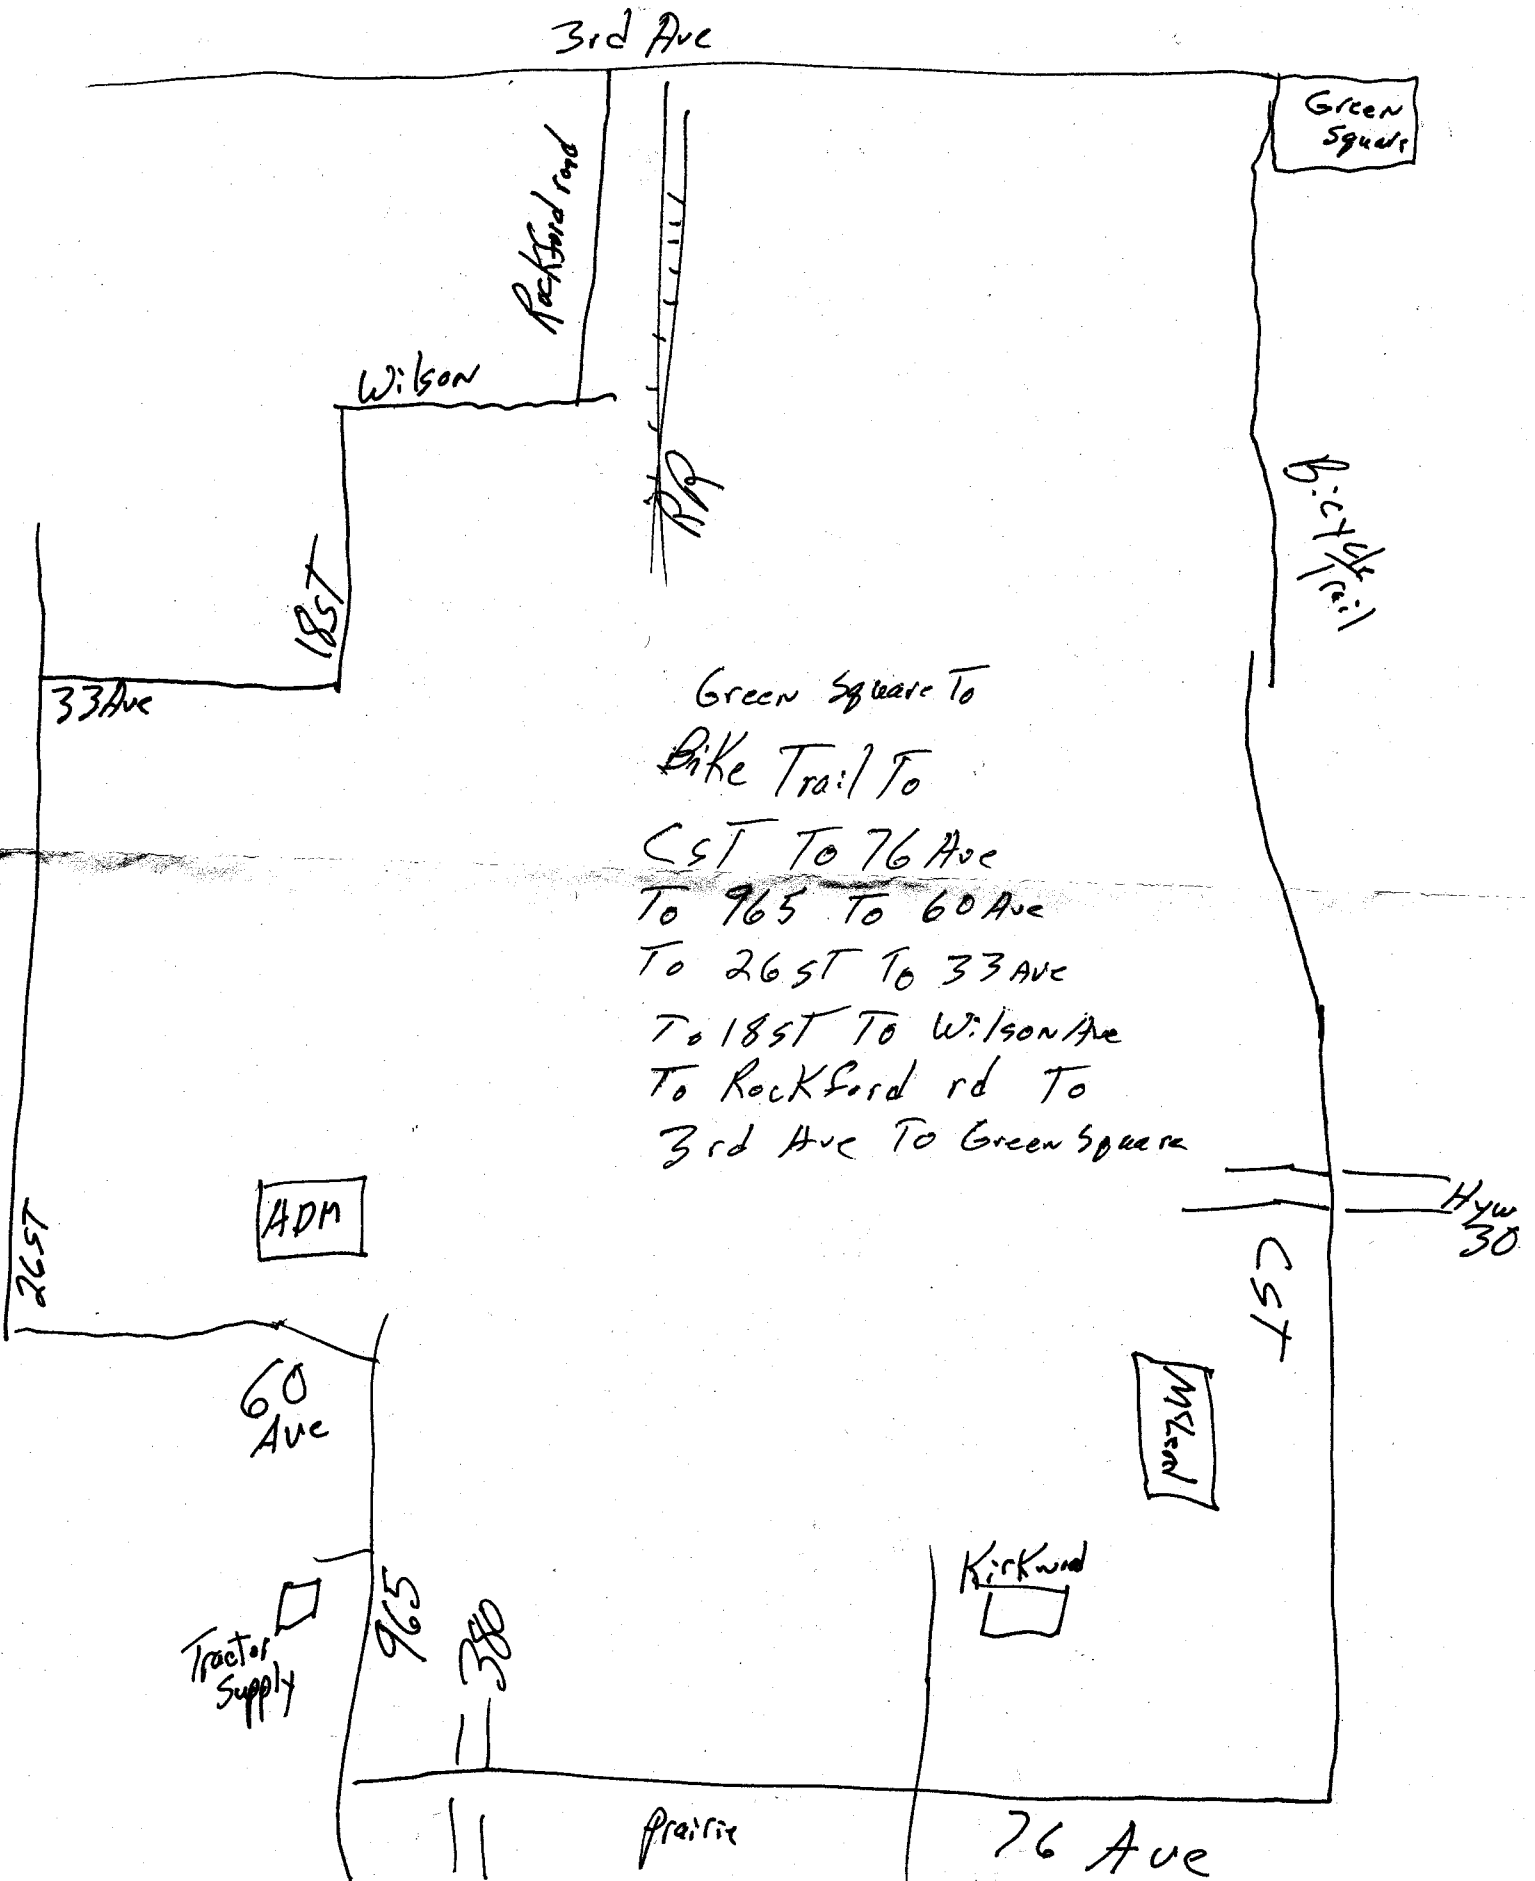 3rd Ave
Green
Square
Rockford road
Wilson
RR
Bicycle
Trail
18ST
33 Ave
Green Square To
Bike Trail To
CST To 76 Ave
To 965 To 60 Ave
To 26ST To 33 Ave
To 18ST To Wilson Ave
To Rockford rd To
3rd Ave To Green Square
ADM
26ST
Hyw
30
CST
60
Ave
Kirkwood
965
380
Tractor
Supply
prairie
76 Ave